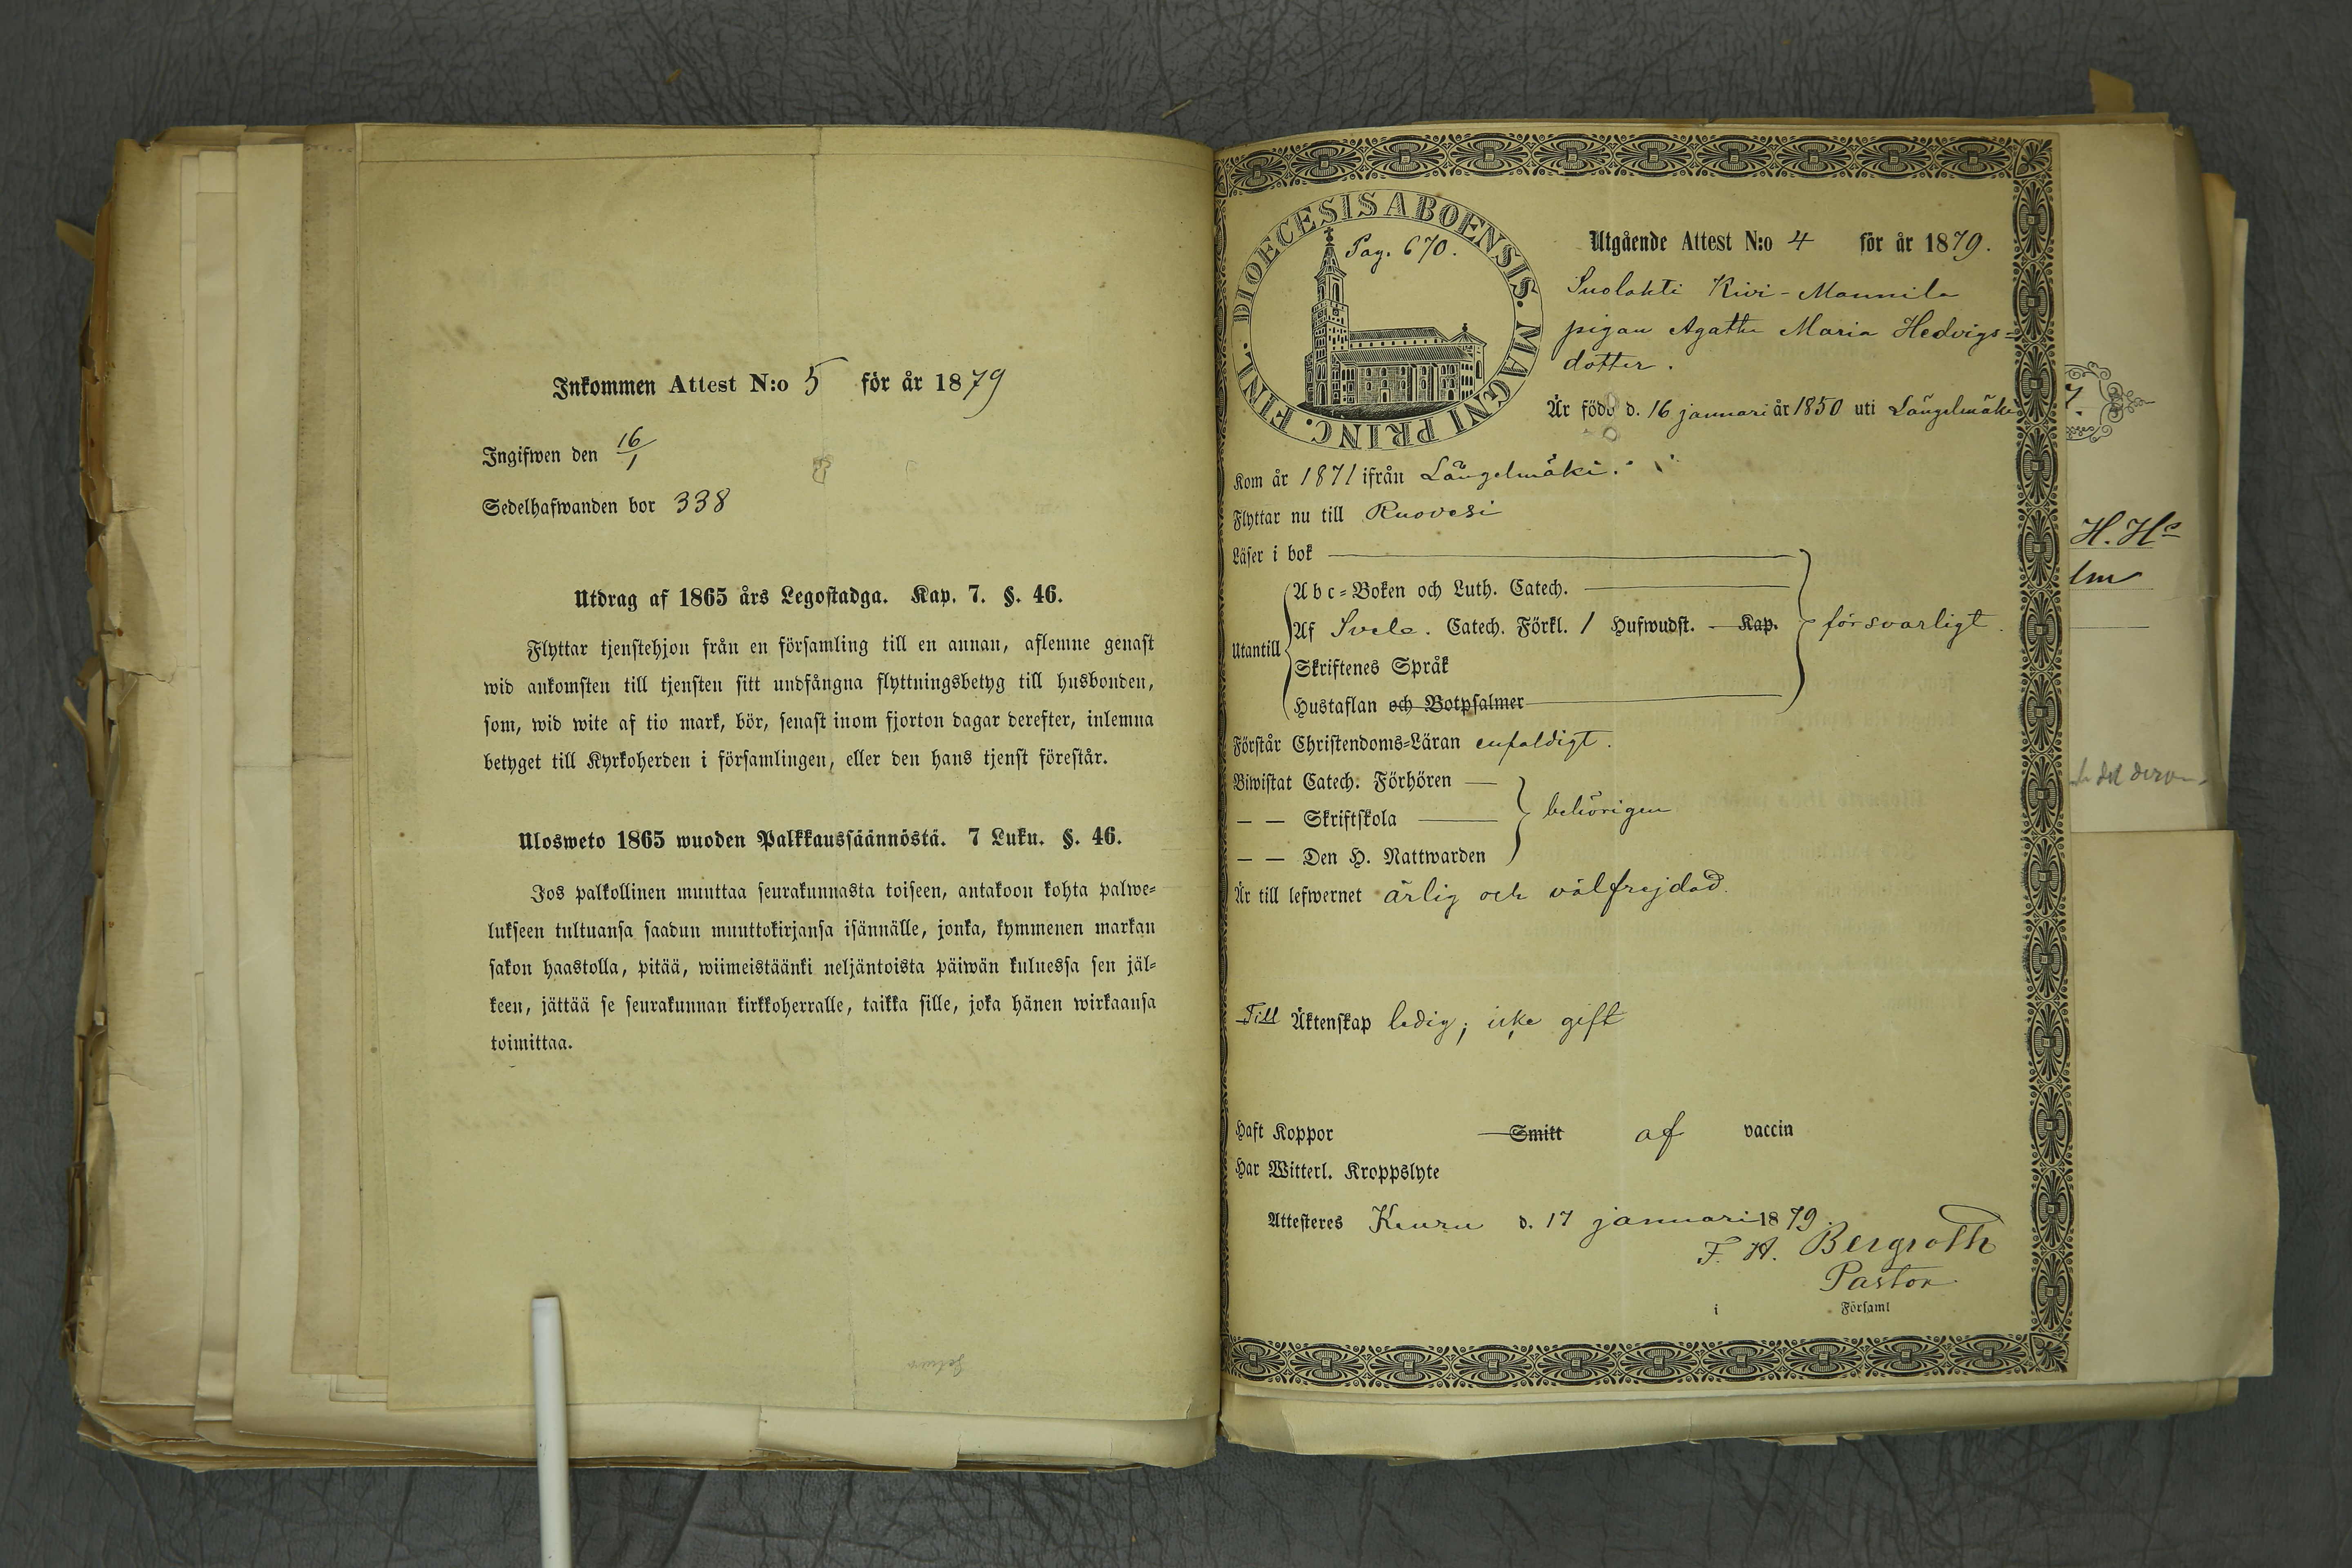 Inkommen Attest N:o 5 för år 1879
Ingifwen den 16/1
Sedelhafwanden bor 338
Utdrag af 1865 års Legostadga. Kap. 7. §. 46.
Flyttar tjenstehjon från en församling till en annan, aflemne genast
wid ankomsten till tjensten sitt undfångna flyttningsbetyg till husbonden,
som, wid wite af tio mark, bör, senast inom fjorton dagar derefter, inlemna
betyget till Kyrkoherden i församlingen, eller den hans tjenst förestår.
Ulosweto 1865 wuoden Palkkaussäännöstä. 7 Luku. §. 46.
Jos palkollinen muuttaa seurakunnasta toiseen, antakoon kohta palwe-
lukseen tultuansa saadun muuttokirjansa isännälle, jonka, kymmenen markan
sakon haastolla, pitää, wiimeistäänki neljäntoista päiwän kuluessa sen jäl-
keen, jättää se seurakunnan kirkkoherralle, taikka sille, joka hänen wirkaansa
toimittaa.
DIOECESIS ABOENSIS. MAGNI PRINC. FINL.
Pag. 670.
Utgående Attest N:o 4 för år 1879.
Suolahti Kivi-Mannila
pigan Agatha Maria Hedvigs-
dotter.
Är född d. 16 januari år 1850 uti Längelmäki
Kom år 1871 ifrån Längelmäki.
Flyttar nu till Ruovesi
Läser i bok
Utantill
Abc-Boken och Luth. Catech.
Af Svele. Catech. Förkl. 1 Hufwudst. Kap.
Skriftenes Språk
Hustaflan och Botpsalmer
försvarligt.
Förstår Christendoms-Läran enfaldigt.
Biwistat Catech. Förhören
— — Skriftskola
— — Den H. Nattwarden
behörigen
Är till lefwernet ärlig och välfrejdad.
Till Äktenskap ledig; icke gift
Haft Koppor Smitt af vaccin
Har Witterl. Kroppslyte
Attesteres Keuru d. 17 januari 1879.
F. H. Bergroth
Pastor
i Församl
H. H:s